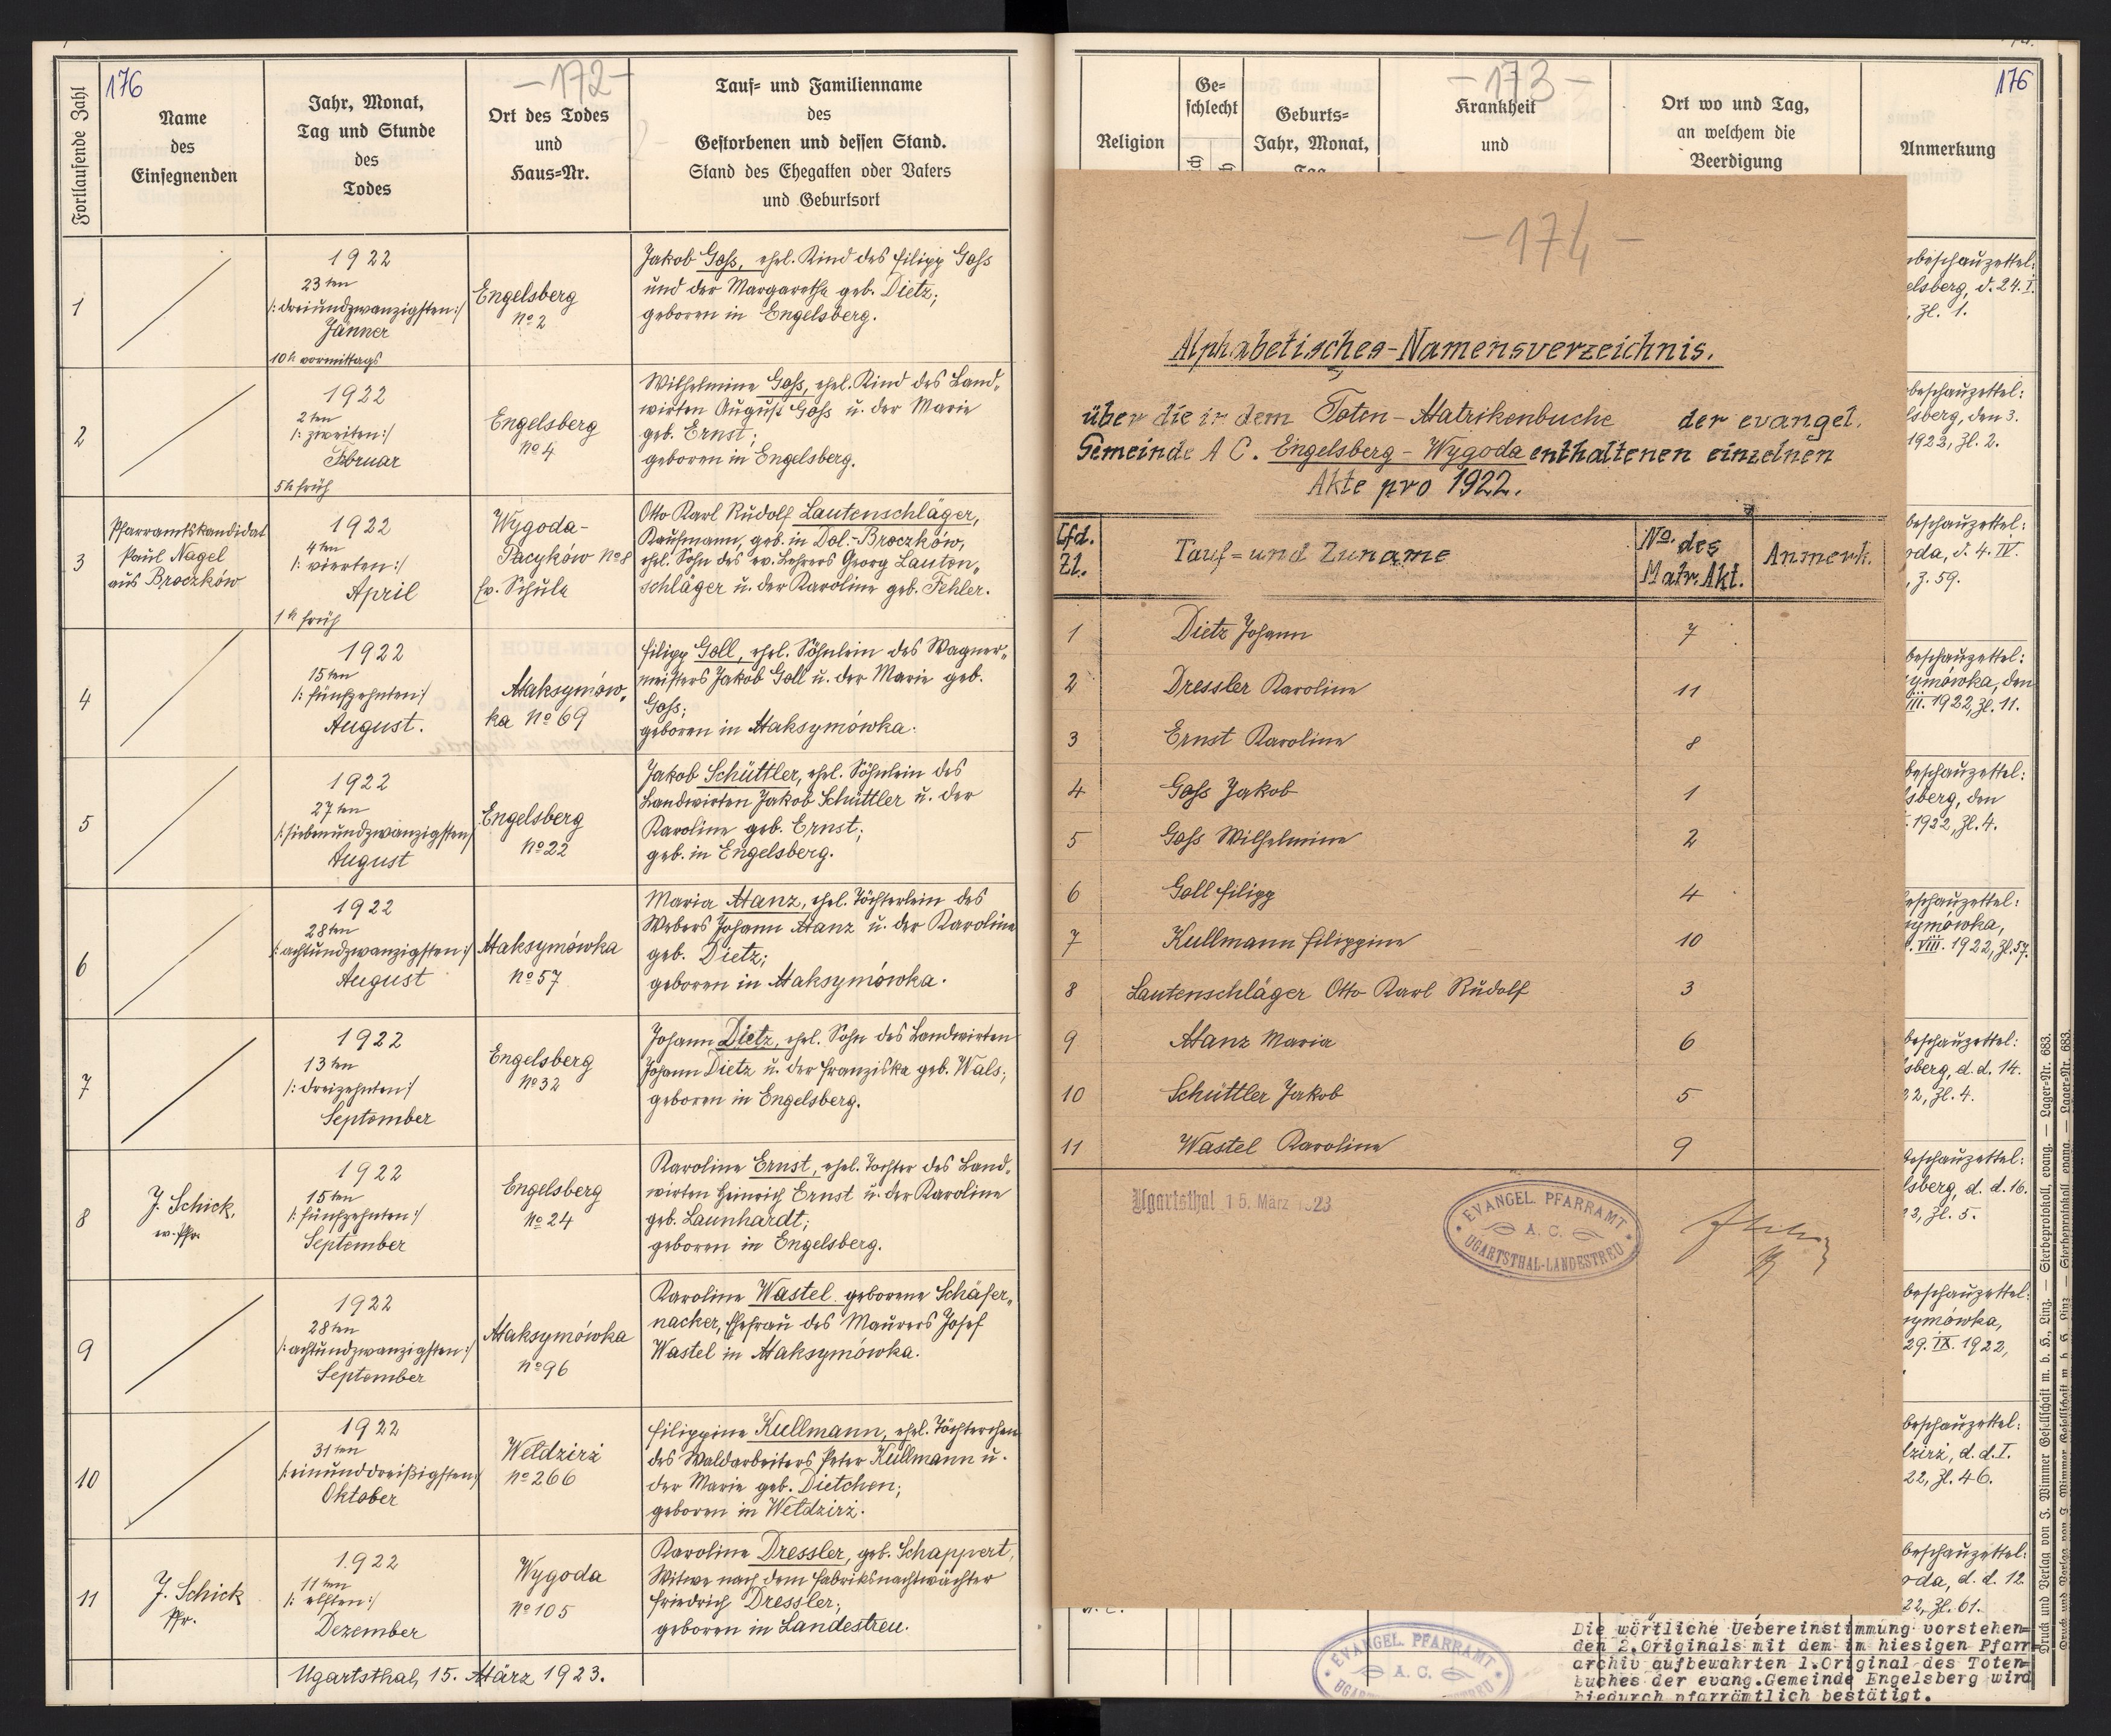 176
-172-
Fortlaufende Zahl
Name
des
Einsegnenden
Jahr, Monat,
Tag und Stunde
des
Todes
Ort des Todes
und
Haus-Nr.
Tauf- und Familienname
des
Gestorbenen und dessen Stand.
Stand des Ehegatten oder Vaters
und Geburtsort
1
1922
23ten
/:dreiundzwanzigsten:/
Jänner
10h vormittags
Engelsberg
No 2
Jakob Goss, ehel. Kind des Filipp Goss
und der Margaretha geb. Dietz;
geboren in Engelsberg.
2
1922
2ten
/:zweiten:/
Februar
5h früh
Engelsberg
No 4
Wilhelmine Goss, ehel. Kind des Land„
wirten August Goss u. der Marie
geb. Ernst;
geboren in Engelsberg.
3
Pfarramtskandidat
Paul Nagel
aus Broczków
1922
4ten
/:vierten:/
April
1h früh
Wygoda-
Pacyków No 8
Ev. Schule
Otto Karl Rudolf Lautenschläger,
Kaufmann, geb. in Dol.-Broczków,
ehel. Sohn des ev. Lehrers Georg Lauten„
schläger u. der Karoline geb. Fehler.
4
1922
15ten
/:fünfzehnten:/
August.
Maksymów„
ka No 69
Filipp Goll, ehel. Söhnlein des Wagner„
meisters Jakob Goll u. der Marie geb.
Goss;
geboren in Maksymówka.
5
1922
27ten
/:siebenundzwanzigsten:/
August
Engelsberg
No 22
Jakob Schüttler, ehel. Söhnlein des
Landwirten Jakob Schüttler u. der
Karoline geb. Ernst;
geb. in Engelsberg.
6
1922
28ten
/:achtundzwanzigsten:/
August
Maksymówka
No 57
Maria Manz, ehel. Töchterlein des
Webers Johann Manz u. der Karoline
geb. Dietz;
geboren in Maksymówka.
7
1922
13ten
/:dreizehnten:/
September
Engelsberg
No 32
Johann Dietz, ehel. Sohn des Landwirten
Johann Dietz u. der Franziska geb. Wals;
geboren in Engelsberg.
8
J. Schick,
ev. Pfr.
1922
15ten
/:fünfzehnten:/
September
Engelsberg
No 24
Karoline Ernst, ehel. Tochter des Land„
wirten Heinrich Ernst u. der Karoline
geb. Launhardt;
geboren in Engelsberg.
9
1922
28ten
/:achtundzwanzigsten:/
September
Maksymówka
No 96
Karoline Wastel geborene Schäfer„
nacker, Ehefrau des Maurers Josef
Wastel in Maksymówka.
10
1922
31ten
/:einunddreißigsten:/
Oktober
Wełdzirż
No 266
Filippine Kullmann, ehel. Töchterchen
des Waldarbeiters Peter Kullmann u.
der Marie geb. Dietchen;
geboren in Wełdzirż.
11
J. Schick
Pfr.
1922
11ten
/:elften:/
Dezember
Wygoda
No 105
Karoline Dressler, geb. Schappert,
Witwe nach dem Fabriksnachtwächter
Friedrich Dressler;
geboren in Landestreu.
Ugartsthal, 15. März 1923.
-173-
176
Religion
Ge-
schlecht
Geburts-
Jahr, Monat,
Tag
Krankheit
und
Ort wo und Tag,
an welchem die
Beerdigung
Anmerkung
-174-
Alphabetisches-Namensverzeichnis.
über die in dem Toten-Matrikenbuche der evangel.
Gemeinde A C. Engelsberg - Wygoda enthaltenen einzelnen
Akte pro 1922.
Lfd. Zl.
Tauf=und Zuname
No. des Matr. Akt.
Anmerk.
1 Dietz Johann 7
2 Dressler Karoline 11
3 Ernst Karoline 8
4 Goss Jakob 1
5 Goss Wilhelmine 2
6 Goll Filipp 4
7 Kullmann Filippine 10
8 Lautenschläger Otto Karl Rudolf 3
9 Manz Maria 6
10 Schüttler Jakob 5
11 Wastel Karoline 9
Ugartsthal 15. März 1923
EVANGEL. PFARRAMT
A. C.
UGARTSTHAL-LANDESTREU
beschauzettel:
elsberg, d. 24. I.
, Zl. 1.
beschauzettel:
lsberg, den 3.
1922, Zl. 2.
beschauzettel:
oda, d. 4. IV.
, Z. 59.
beschauzettel:
ymówka, den
III. 1922, Zl. 11.
beschauzettel:
lsberg, den
. 1922, Zl. 4.
beschauzettel:
symówka,
. VIII. 1922, Zl. 57.
beschauzettel:
lsberg, d. d. 14.
22, Zl. 4.
beschauzettel:
lsberg, d. d. 16.
22, Zl. 5.
beschauzettel:
symówka,
29. IX. 1922,
beschauzettel:
dzirż, d. d. I.
22, Zl. 46.
beschauzettel:
oda, d. d. 12.
22, Zl. 61.
EVANGEL. PFARRAMT
A. C.
Die wörtliche Uebereinstimmung vorstehen=
den 2.Originals mit dem im hiesigen Pfarr=
archiv aufbewahrten 1.Original des Toten=
buches der evang.Gemeinde Engelsberg wird
hiedurch pfarrämtlich bestätigt.
Druck und Verlag von J. Wimmer Gesellschaft m. b. H., Linz. — Sterbeprotokoll, evang. — Lager-Nr. 683.